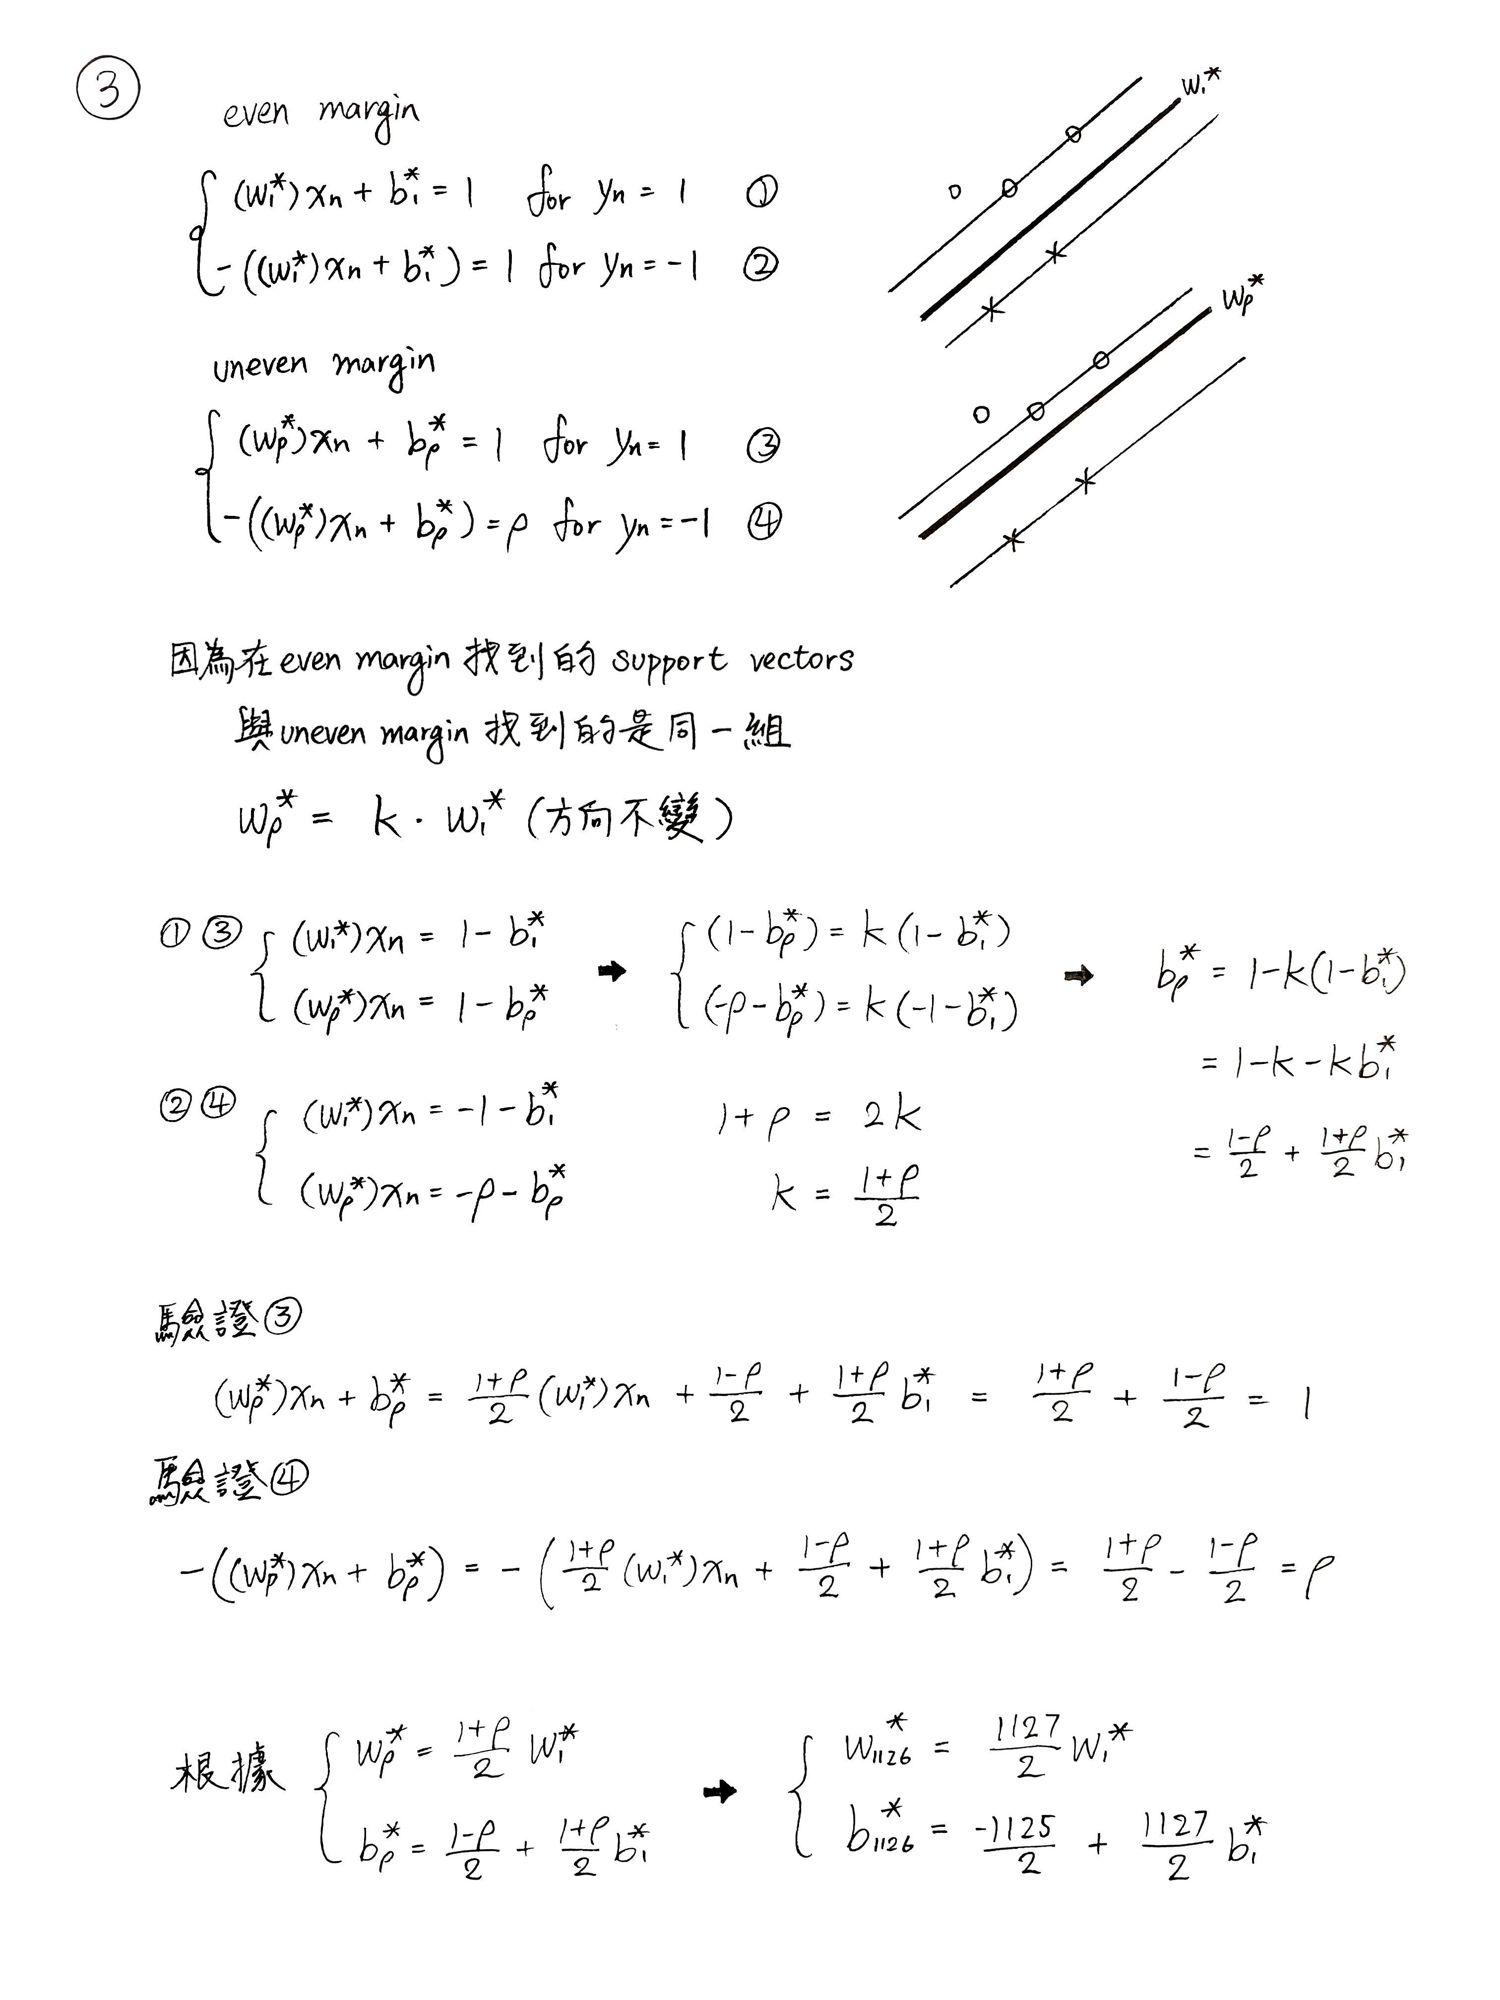 ③
even margin
(w₁*)xn + b₁* = 1 for yn = 1 ①
-((w₁*)xn + b₁*) = 1 for yn = -1 ②
w₁*
uneven margin
(wρ*)xn + bρ* = 1 for yn = 1 ③
-((wρ*)xn + bρ*) = ρ for yn = -1 ④
wρ*
因為在 even margin 找到的 support vectors
與 uneven margin 找到的是同一組
wρ* = k · w₁* (方向不變)
①③ (w₁*)xn = 1 - b₁*
(wρ*)xn = 1 - bρ*
②④ (w₁*)xn = -1 - b₁*
(wρ*)xn = -ρ - bρ*
➡ (1 - bρ*) = k(1 - b₁*)
(-ρ - bρ*) = k(-1 - b₁*)
1 + ρ = 2k
k = (1+ρ)/2
➡ bρ* = 1 - k(1 - b₁*)
= 1 - k - kb₁*
= (1-ρ)/2 + (1+ρ)/2 b₁*
驗證③
(wρ*)xn + bρ* = (1+ρ)/2 (w₁*)xn + (1-ρ)/2 + (1+ρ)/2 b₁* = (1+ρ)/2 + (1-ρ)/2 = 1
驗證④
-((wρ*)xn + bρ*) = -((1+ρ)/2 (w₁*)xn + (1-ρ)/2 + (1+ρ)/2 b₁*) = (1+ρ)/2 - (1-ρ)/2 = ρ
根據 wρ* = (1+ρ)/2 w₁*
bρ* = (1-ρ)/2 + (1+ρ)/2 b₁*
➡ w₁₁₂₆* = 1127/2 w₁*
b₁₁₂₆* = -1125/2 + 1127/2 b₁*